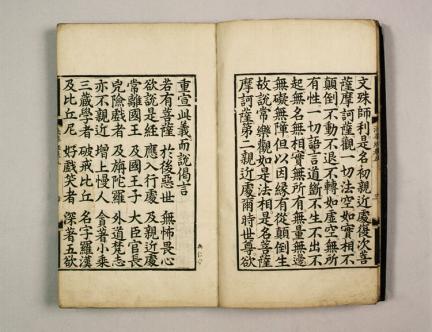 文殊師利是名初親近處復次菩
薩摩訶薩觀一切法空如實相不
顛倒不動不退不轉如虛空無所
有性一切語言道斷不生不出不
起無名無相實無所有無量無邊
無礙無障但以因緣有從顛倒生
故說常樂觀如是法相是名菩薩
摩訶薩第二親近處爾時世尊欲
重宣此義而說偈言
若有菩薩 於後惡世 無怖畏心
欲說是經 應入行處 及親近處
常離國王 及國王子 大臣官長
兇險戲者 及旃陀羅 外道梵志
亦不親近 增上慢人 貪著小乘
三藏學者 破戒比丘 名字羅漢
及比丘尼 好戲笑者 深著五欲